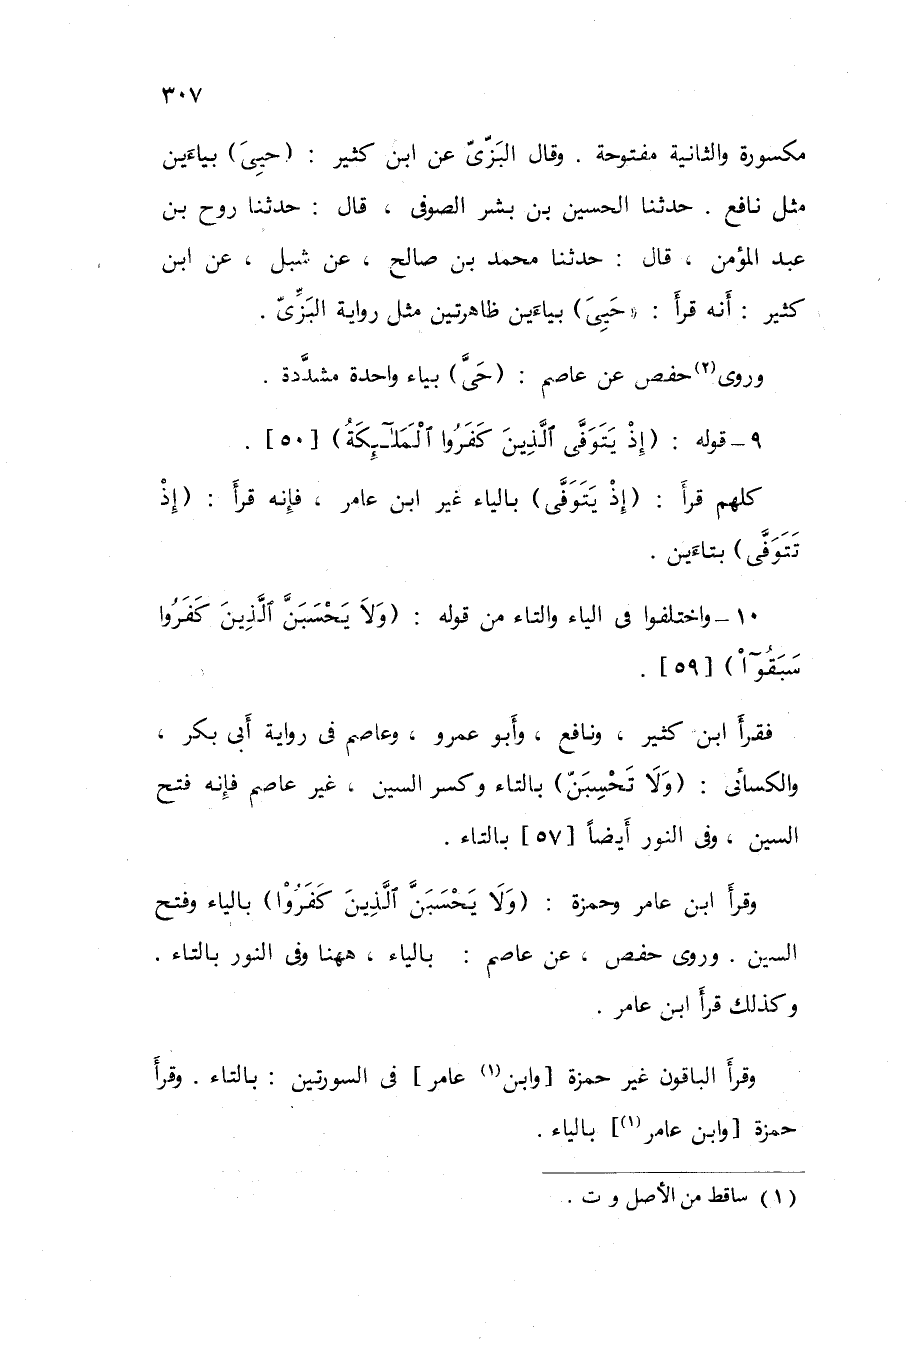 ٣٠٧
مكسورة والثانية مفتوحة . وقال البَزِّىّ عن ابن كثير : (حيِىَ) بياءَين
مثل نافع . حدثنا الحسين بن بشر الصوفى ، قال : حدثنا روح بن
عبد المؤمن ، قال : حدثنا محمد بن صالح ، عن شبل ، عن ابن
كثير : أنه قرأَ : « حَيِىَ) بياءَين ظاهرتين مثل رواية البَزِّىّ .
وروى(٢) حفص عن عاصم : (حَىَّ) بياء واحدة مشدَّدة .
٩ ــ قوله : (إِذْ يَتَوَفَّى ٱلَّذِينَ كَفَرُوا ٱلْمَلَـٰٓئِكَةُ) [٥٠] .
كلهم قرأَ : (إِذْ يَتَوَفَّى) بالياء غير ابن عامر ، فإنه قرأَ : (إِذْ
تَتَوَفَّى) بتاءَين .
١٠ ــ واختلفوا فى الياء والتاء من قوله : (وَلَا يَحْسَبَنَّ ٱلَّذِينَ كَفَرُوا
سَبَقُوٓاْ) [٥٩] .
فقرأَ ابن كثير ، ونافع ، وأَبو عمرو ، وعاصم فى رواية أَبى بكر ،
والكسائى : (وَلَا تَحْسِبَنّ) بالتاء وكسر السين ، غير عاصم فإنه فتح
السين ، وفى النور أَيضاً [٥٧] بالتاء .
وقرأَ ابن عامر وحمزة : (وَلَا يَحْسَبَنَّ ٱلَّذِينَ كَفَرُوْا) بالياء وفتح
السين . وروى حفص ، عن عاصم : بالياء ، ههنا وفى النور بالتاء .
وكذلك قرأَ ابن عامر .
وقرأَ الباقون غير حمزة [وابن(١) عامر] فى السورتين : بالتاء . وقرأَ
حمزة [وابن عامر(١)] بالياء .
(١) ساقط من الأصل و ت .